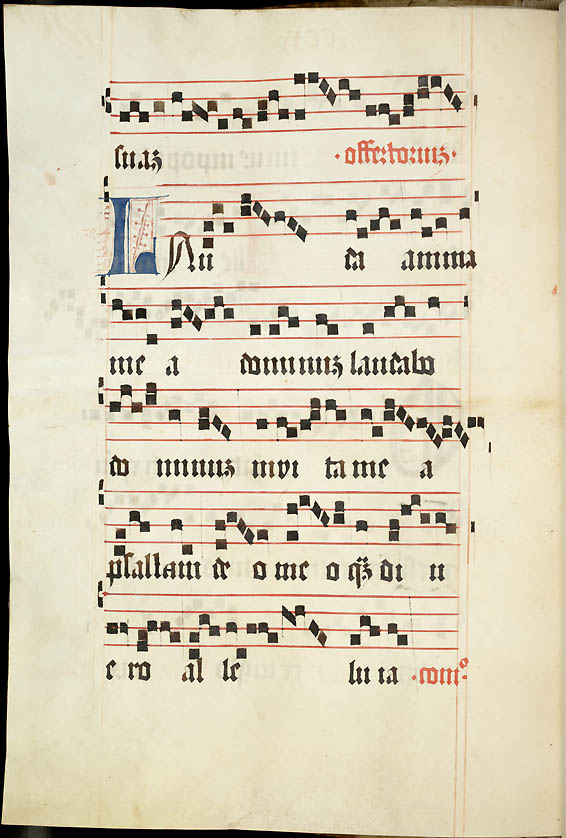 suaꝫ · offertoriuꝫ ·
Lau da anima
me a dominuꝫ laudabo
do minuꝫ in vi ta me a
psallam de o me o qꝫ di u
e ro al le lu ia · com̊ ·